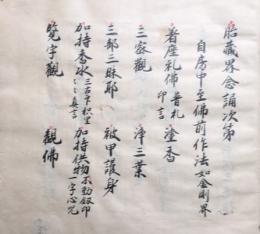 胎藏界念誦次第
自房中至佛前作法如金剛界
着座礼佛 普礼印言 塗香
三密觀 淨三業
三部三昧耶 被甲護身
加持香水 三古印 枳里〻〻真言 加持供物 不動釼印一字心咒
覽字觀 觀佛